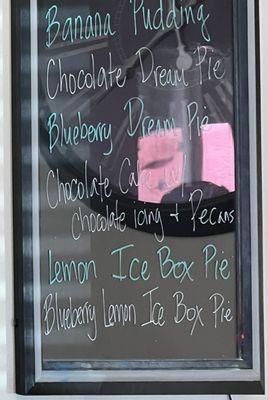 Banana Pudding
Chocolate Dream Pie
Blueberry Dream Pie
Chocolate Cake w/
Chocolate icing + Pecans
Lemon Ice Box Pie
Blueberry Lemon Ice Box Pie